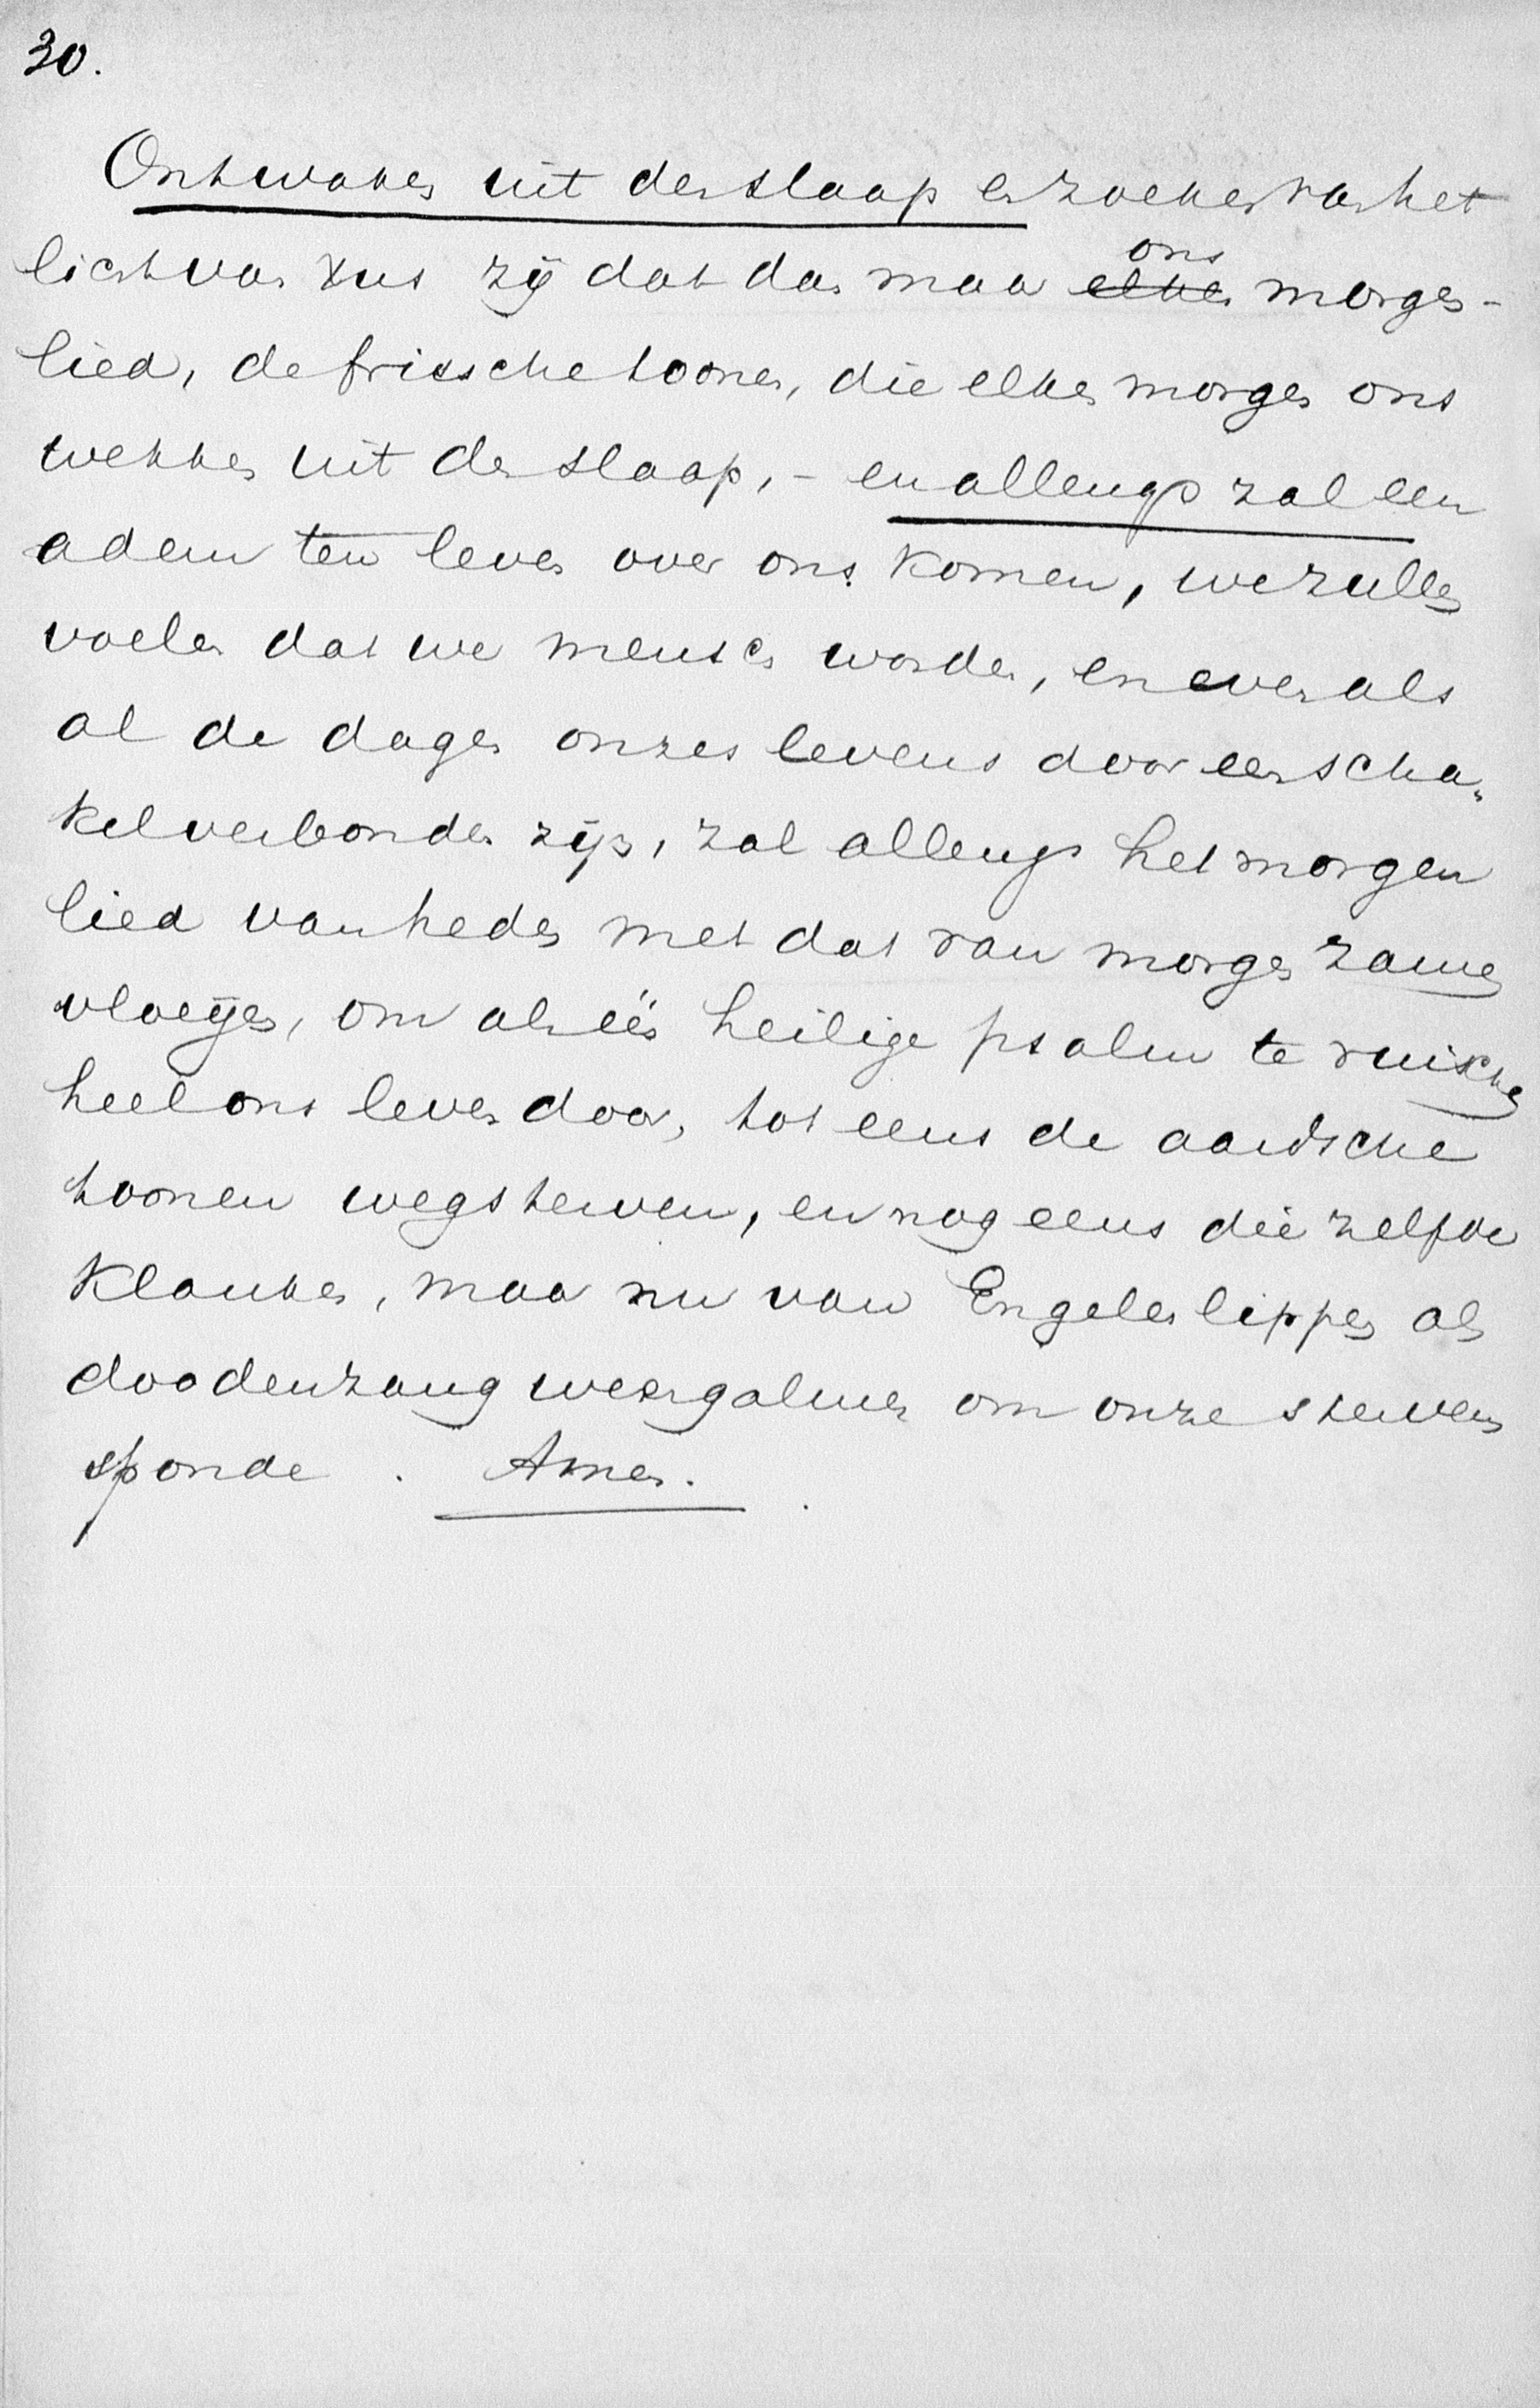 30.
Ontwaken uit den slaap en zoeken van het
licht van Xus zij dat dan maar ~~elken~~ ons morgen-
lied, de frissche toonen, die elken morgen ons
wekken uit den slaap, - en allengs zal een
adem ten leven over ons komen, we zullen
voelen dat we mensch worden, en even als
al de dagen onzes levens door een scha-
kel verbonden zijn, zal allengs het morgen
lied van heden met dat van morgen zamen
vloeijen, om als één heilige psalm te ruischen
heel ons leven door, tot eens de aardsche
toonen wegsterven, en nog eens die zelfde
klanken, maar nu van Engelen lippen als
doodenzang weergalmen om onze stervens
sponde. Amen.